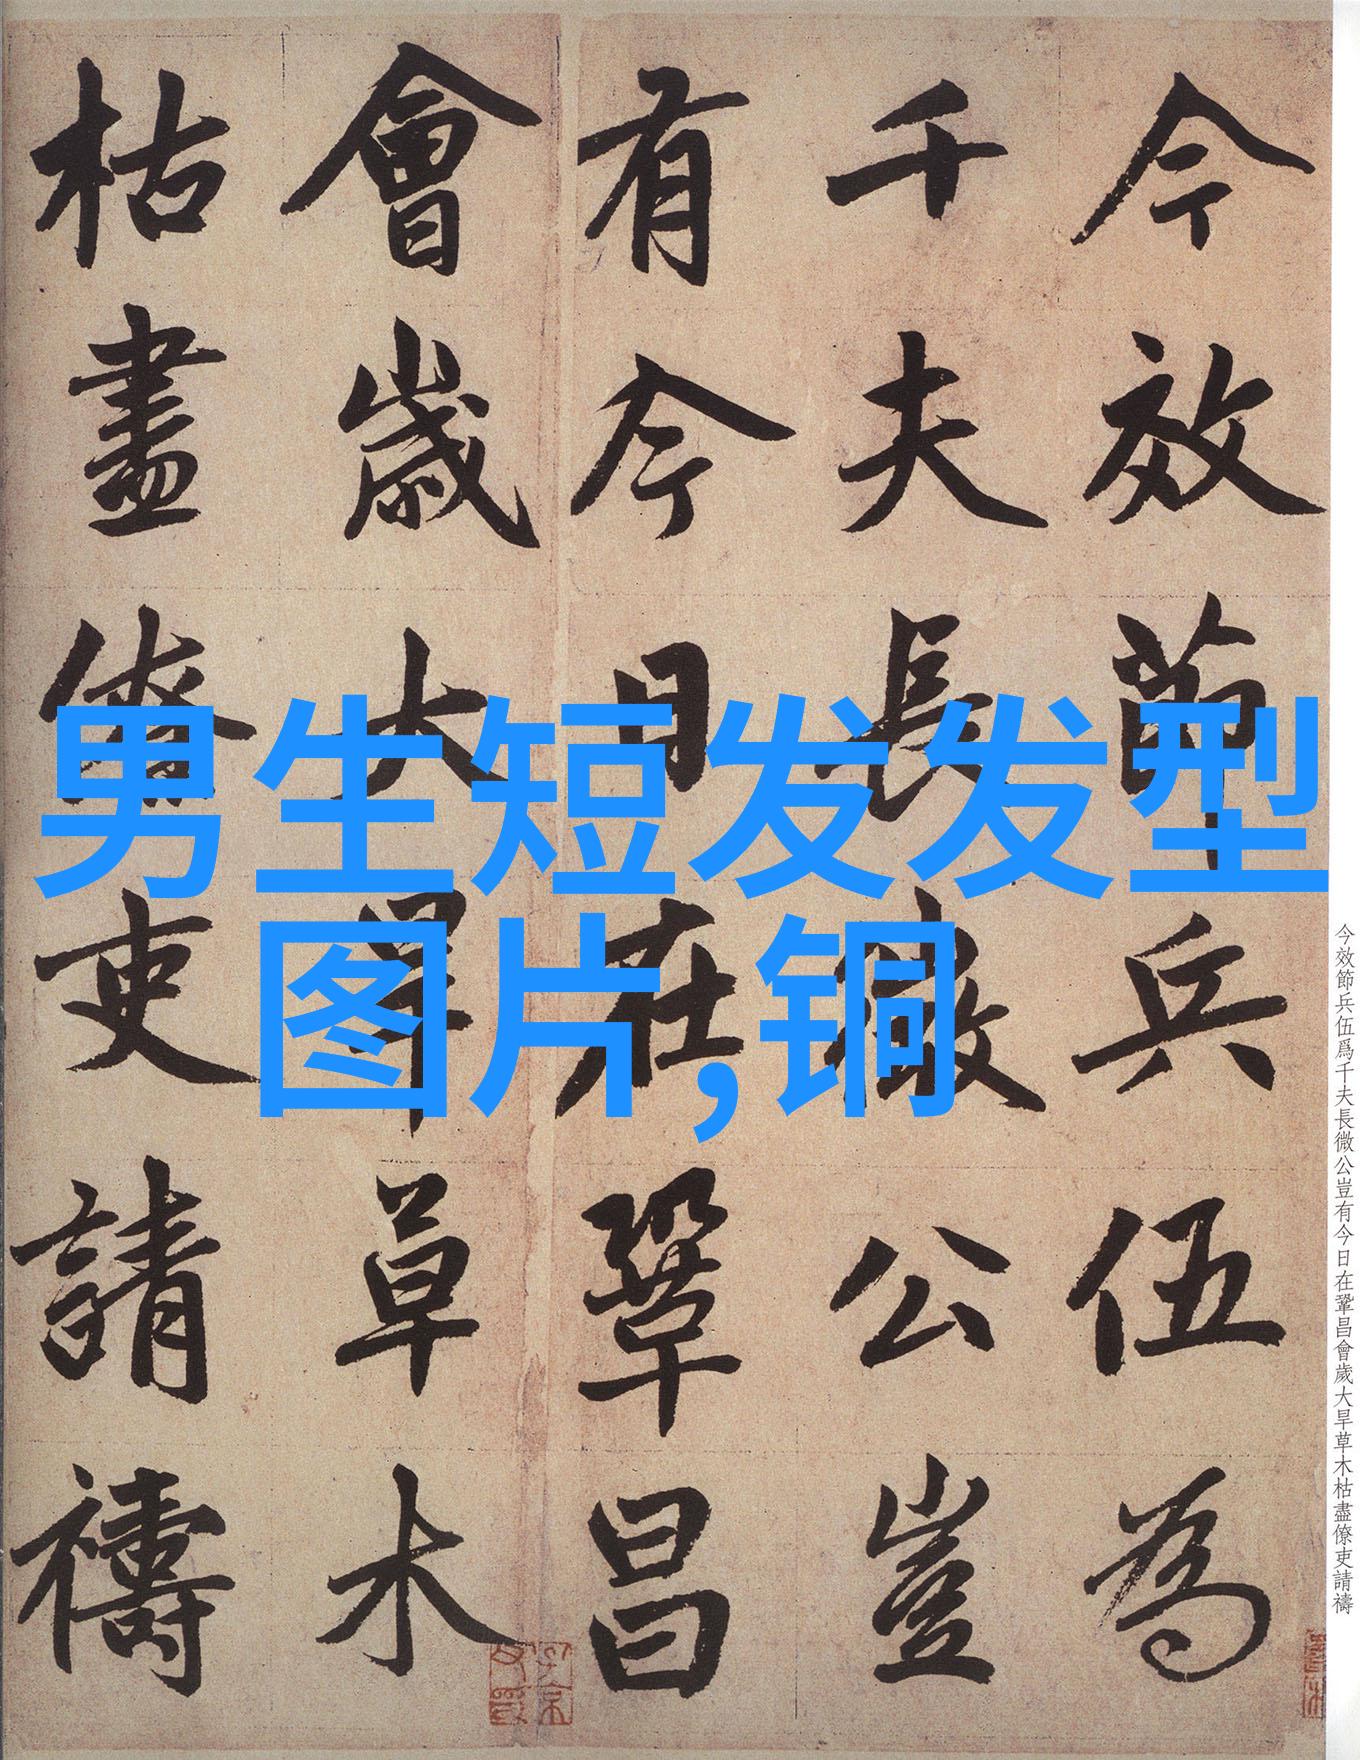 今效節兵伍為
千夫長微公豈
有今日在鞏昌
會歲大旱草木
枯盡僚吏請禱
男生短发发型
图片,铜
今效節兵伍爲千夫長微公豈有今日在鞏昌會歲大旱草木枯盡僚吏請禱